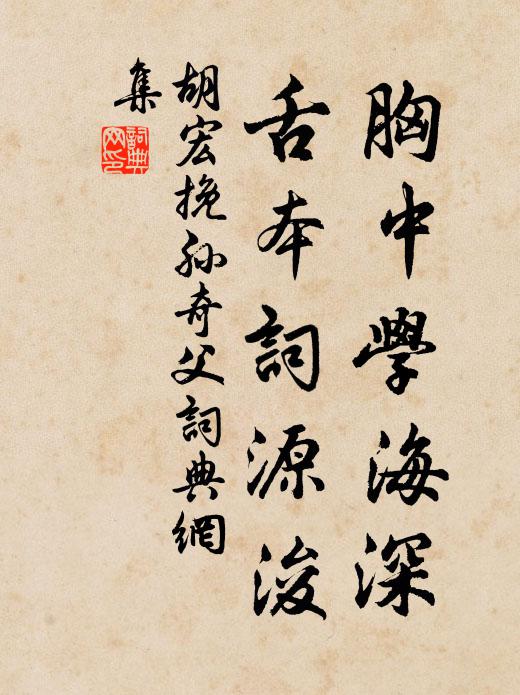 胸中學海深
舌本詞源浚
胡宏挽孫奇父詞典網
集
詞典
网印